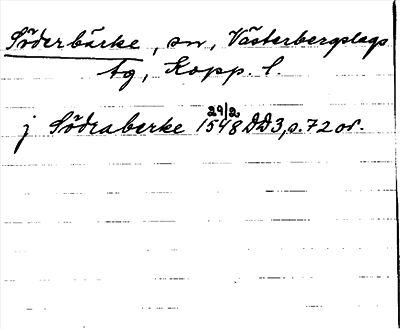 Söderbärke, sn, Västerbergslags
tg, Kopp. l.
j Södraberke 1548 29/2 DD3, s. 72 or.